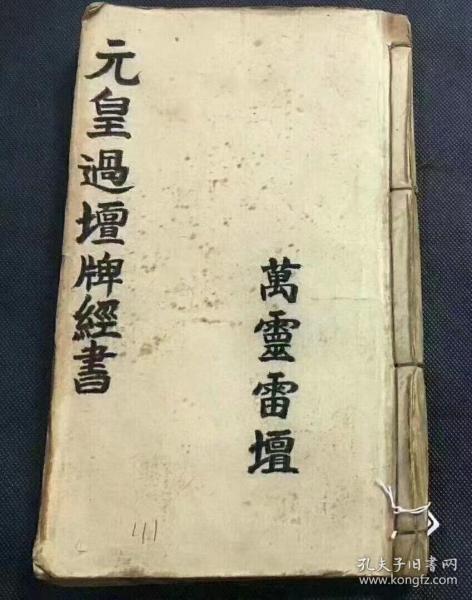 元皇過壇牌經書
萬靈雷壇
411
孔夫子旧书网
www.kongfz.com